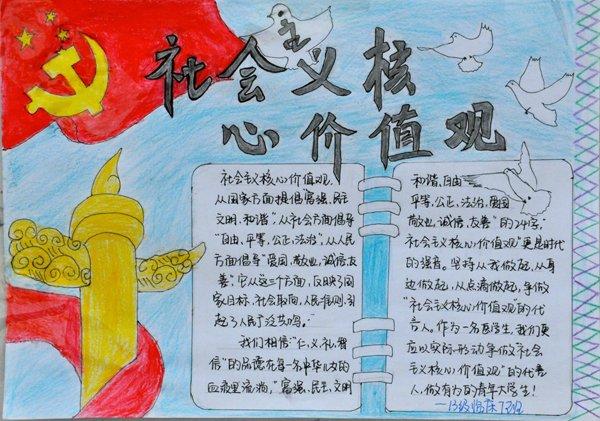 社会主义核
心价值观
社会主义核心价值观,
从国家方面提倡“富强、民主
文明、和谐”,从社会方面倡导
“自由、平等、公正、法治”,从人民
方面倡导“爱国、敬业、诚信、友
善”。它从这三个方面,反映了国
家目标、社会取向、人民准则,引
起了人民广泛共鸣。”
我们相信“仁、义、礼、智
信”的品德在每一名中华儿女的
血液里流淌,“富强、民主、文明
和谐、自由
平等、公正、法治、爱国
敬业、诚信、友善”的24字,
“社会主义核心价值观”更是时代
的强音。坚持从我做起,从身
边做起,从点滴做起,争做
“社会主义核心价值观”的代
言人。作为一名医学生,我们更
应以实际形动争做社会
主义核心价值观”的代言
人,做有为的青年大学生!
—13级临床7班